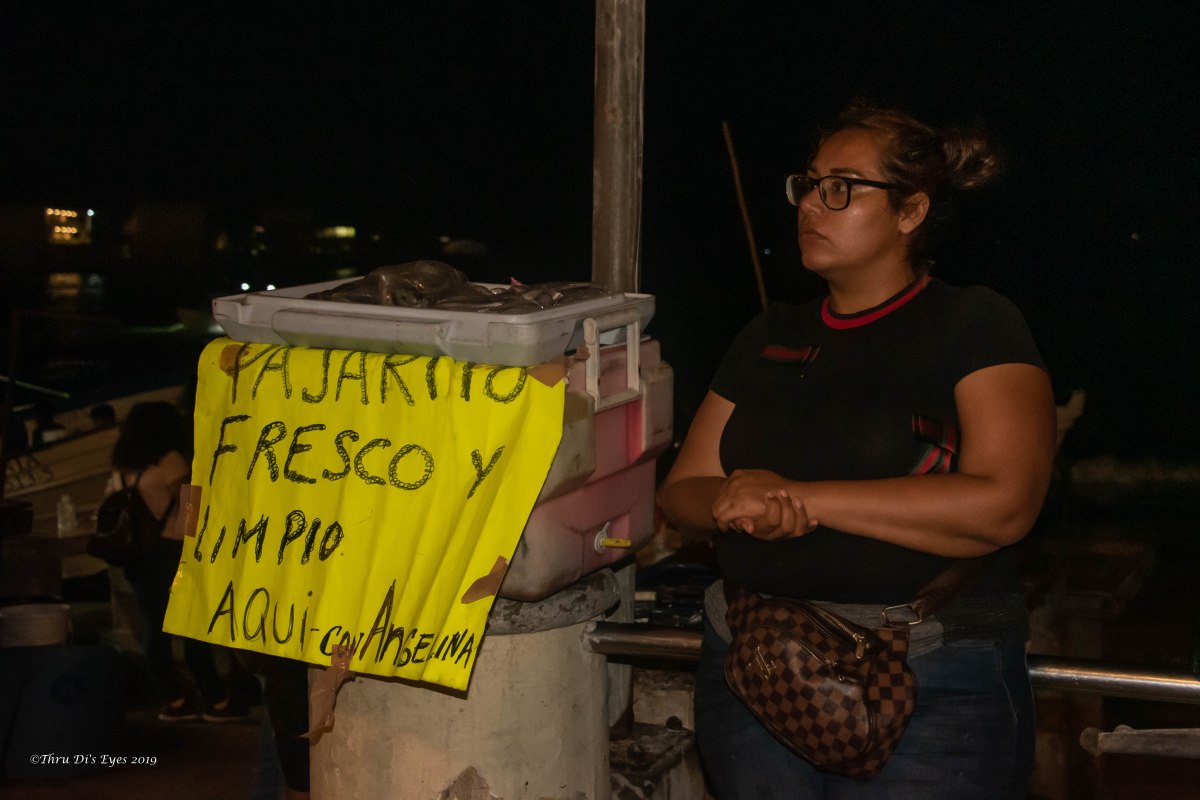 PAJARITO
FRESCO Y
LIMPIO
AQUI-CON ANGELINA
©Thru Di's Eyes 2019